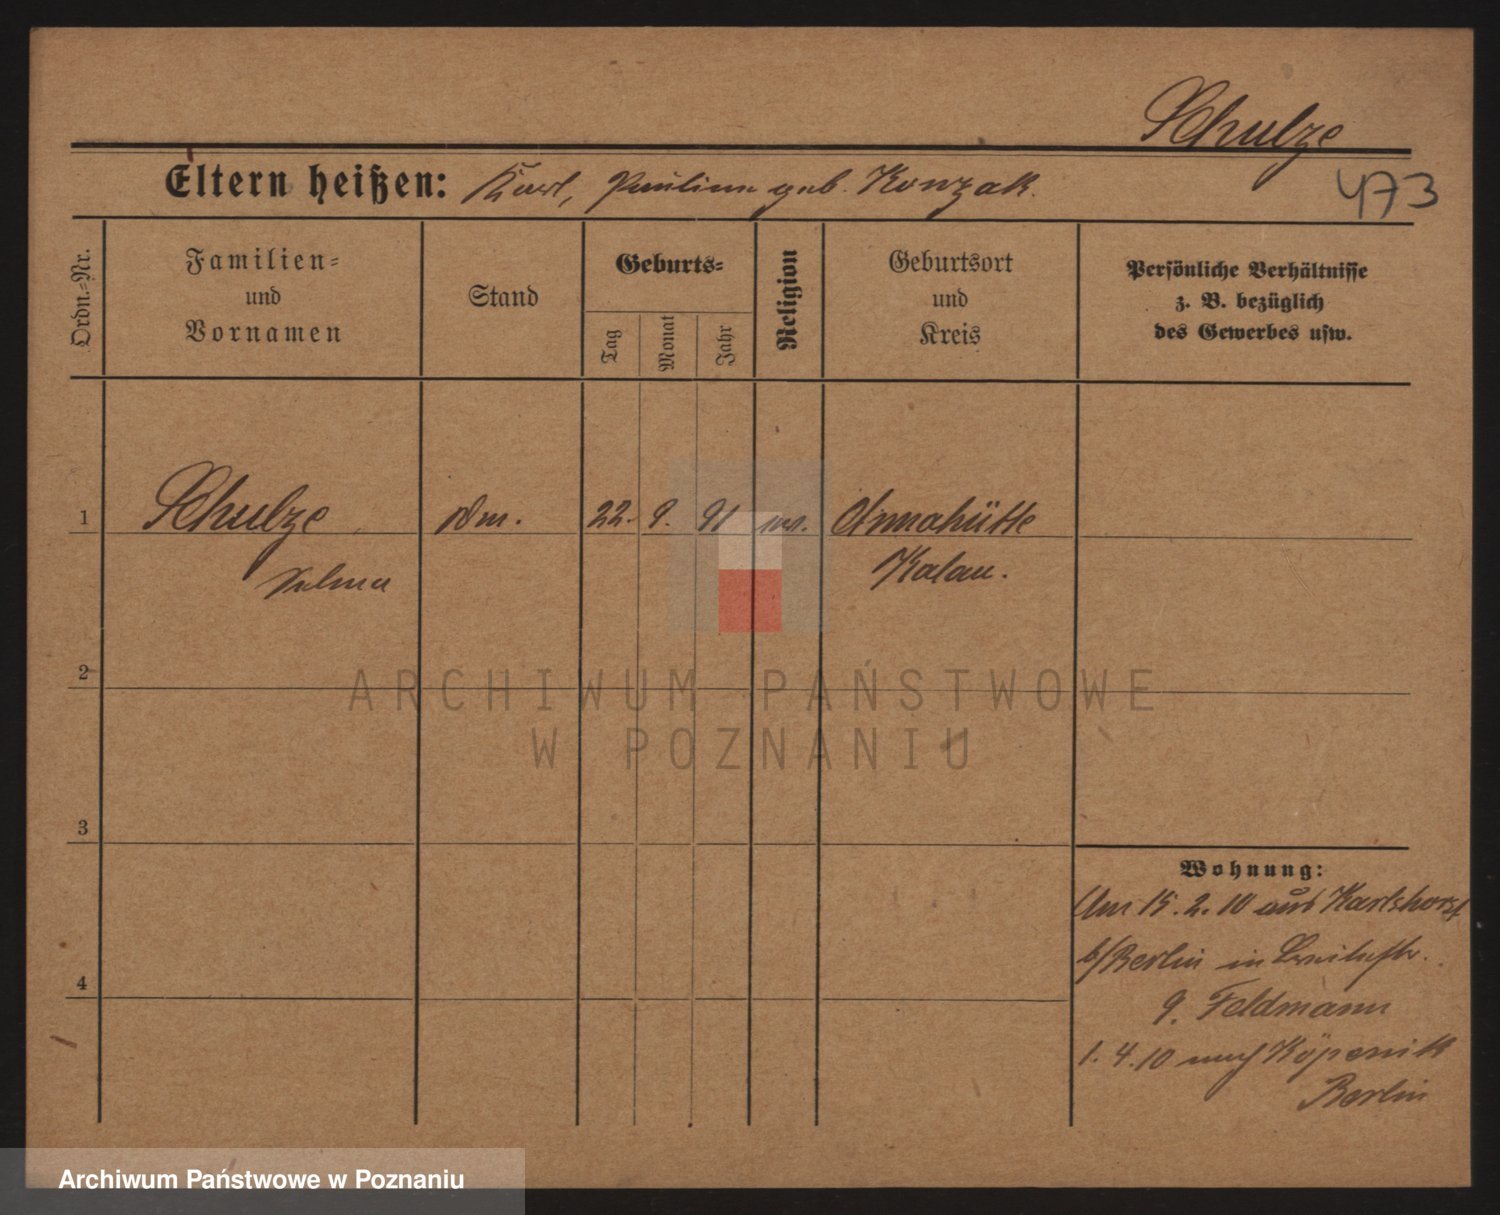 Schulze
Eltern heißen: Karl, Pauline geb. Konzak.
473
Ordn.-Nr.
Familien-
und
Vornamen
Stand
Geburts-
Tag
Monat
Jahr
Religion
Geburtsort
und
Kreis
Persönliche Verhältnisse
z. B. bezüglich
des Gewerbes usw.
1
Schulze
Selma
22. 9. 91
Annahütte
Kalau.
2
3
4
Wohnung:
Am 15. 2. 10 aus Karlshorst
b/Berlin in
9. Feldmann
1. 4. 10 nach Köpenik
Berlin
ARCHIWUM PAŃSTWOWE
W POZNANIU
Archiwum Państwowe w Poznaniu